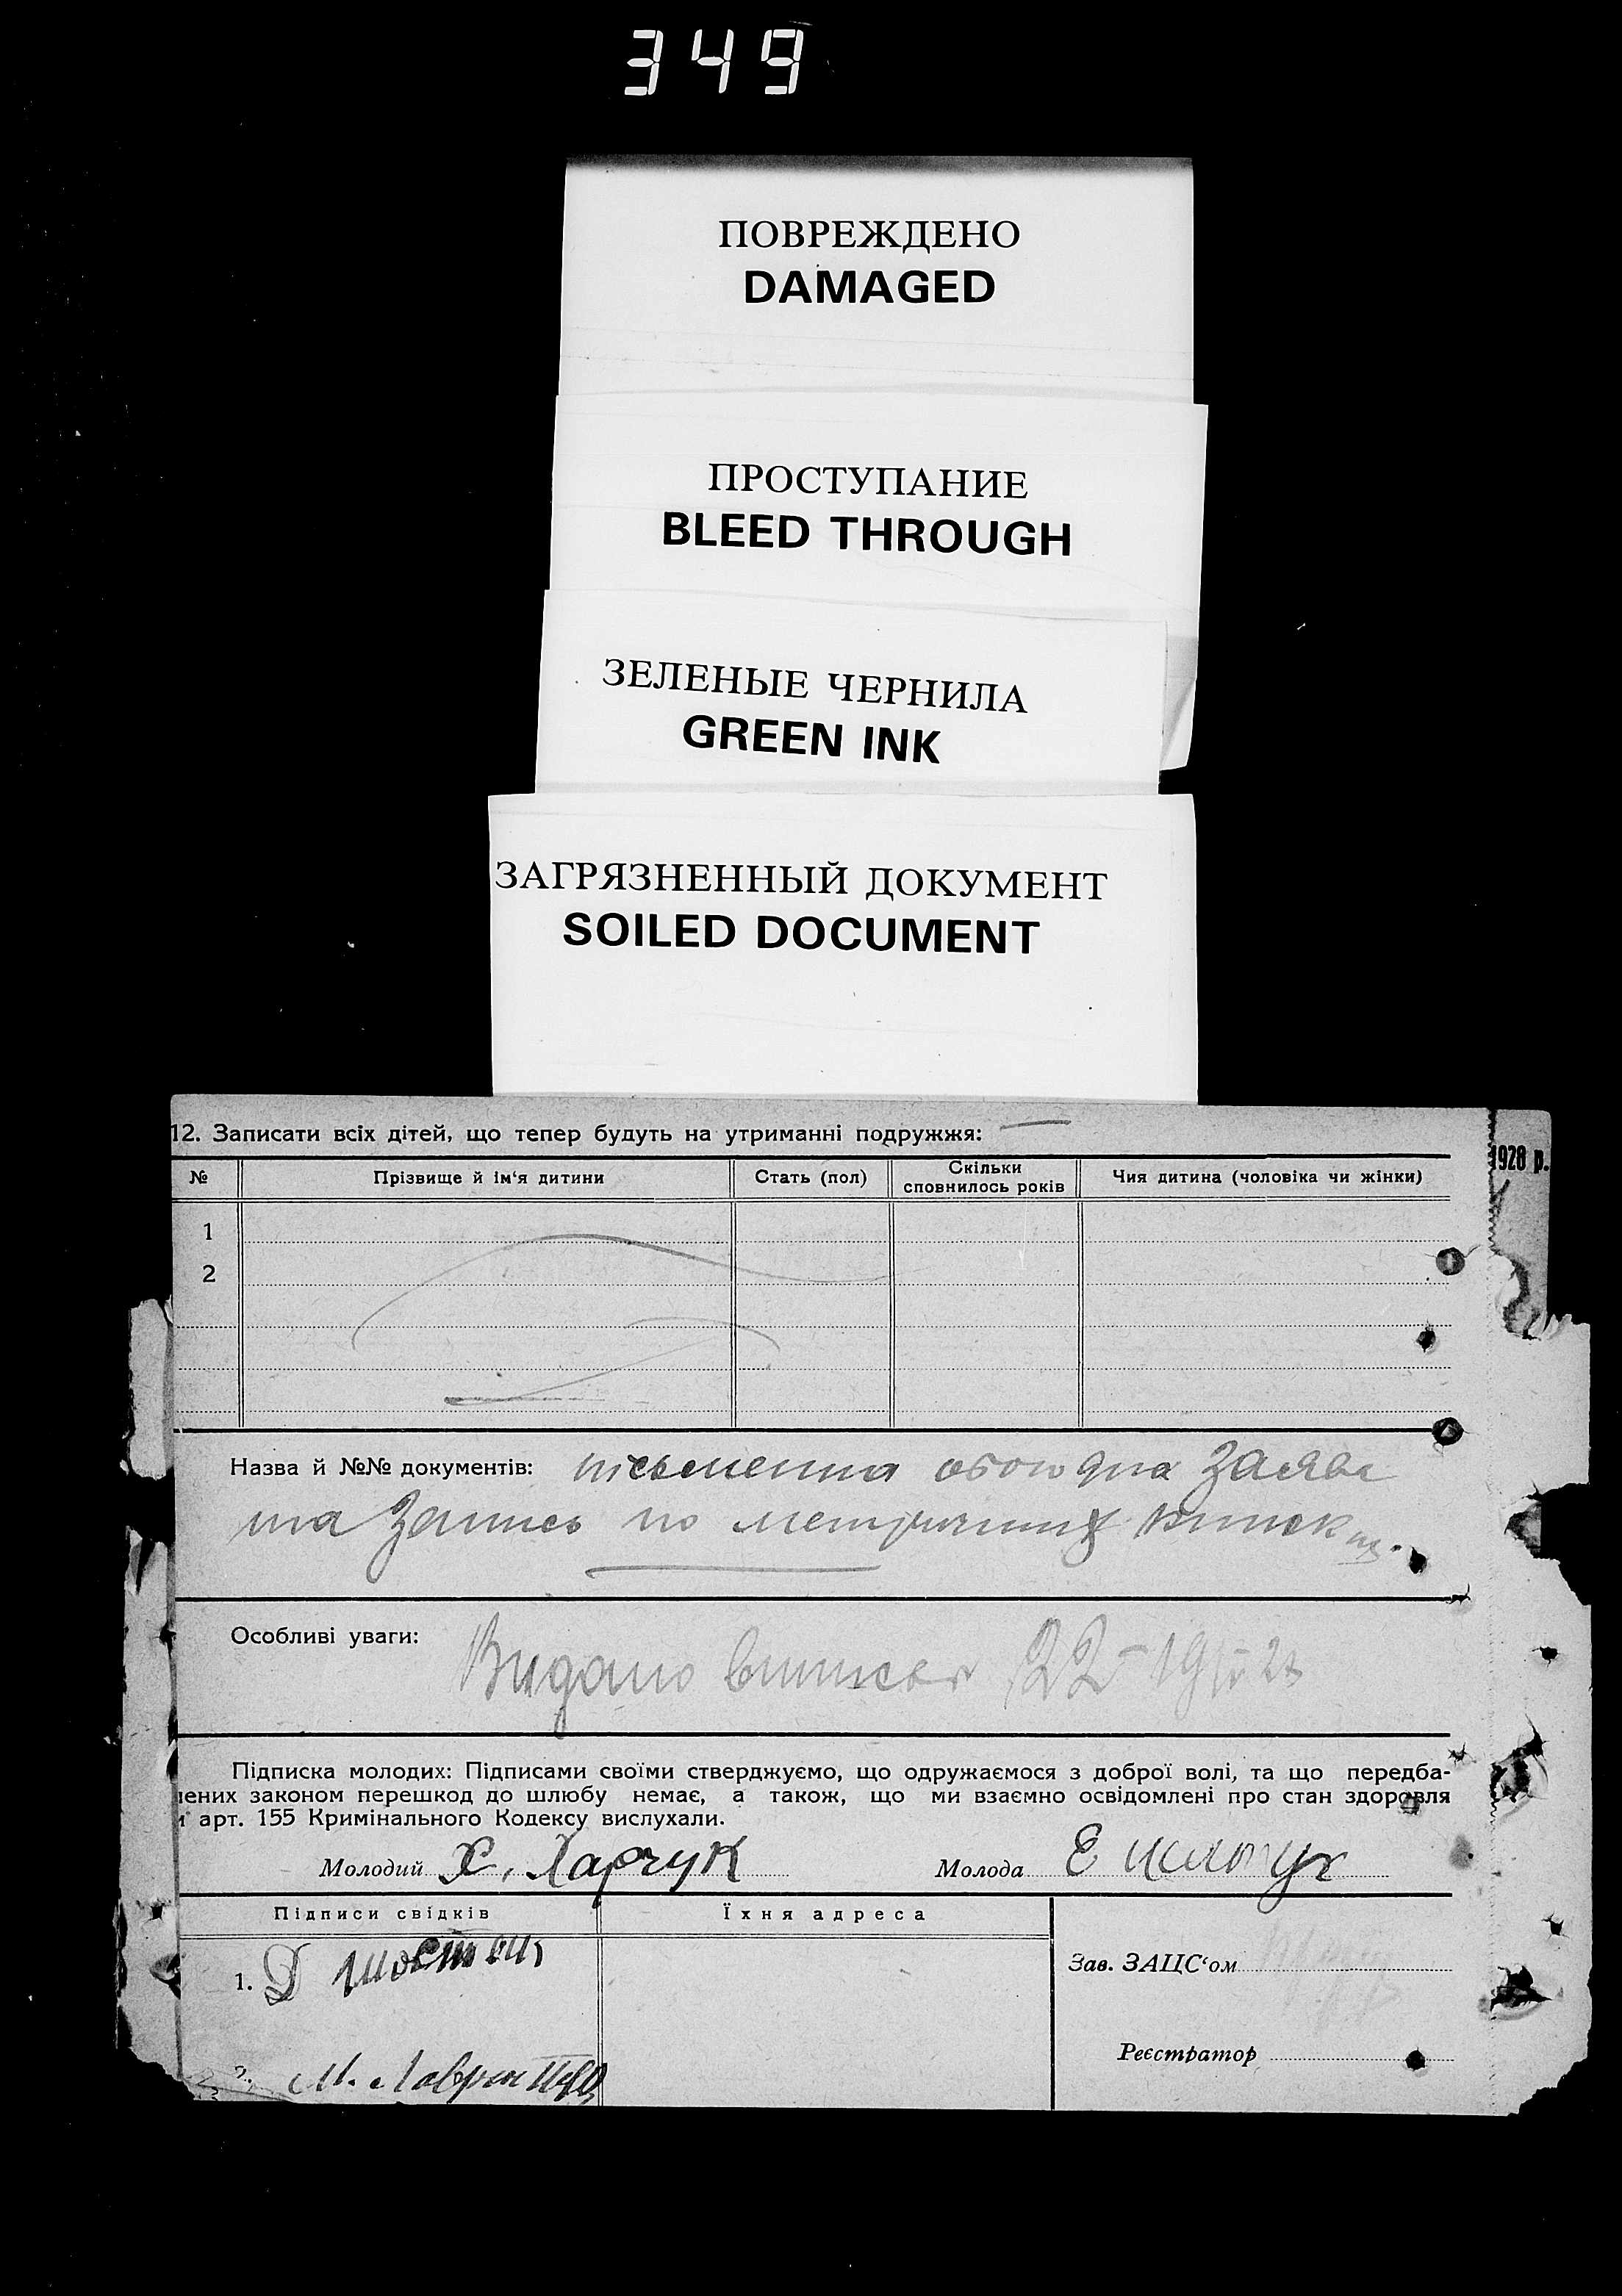 349
ПОВРЕЖДЕНО
DAMAGED
ПРОСТУПАНИЕ
BLEED THROUGH
ЗЕЛЕНЫЕ ЧЕРНИЛА
GREEN INK
ЗАГРЯЗНЕННЫЙ ДОКУМЕНТ
SOILED DOCUMENT
12. Записати всіх дітей, що тепер будуть на утриманні подружжя:
1928 р.
№ Прізвище й ім‘я дитини Стать (пол) Скільки сповнилось років Чия дитина (чоловіка чи жінки)
1
2
Назва й №№ документів: письменна обоюдна заява
та запись по метричних книсках.
Особливі уваги: Видано виписы 22-
Підписка молодих: Підписами своїми стверджуємо, що одружаємося з доброї волі, та що передба-
чених законом перешкод до шлюбу немає, а також, що ми взаємно освідомлені про стан здоровля
й арт. 155 Кримінального Кодексу вислухали.
Молодий Х. Харчук Молода Е
Підписи свідків Їхня адреса
1. Д
Зав. ЗАЦС‘ом
2. М.
Реєстратор